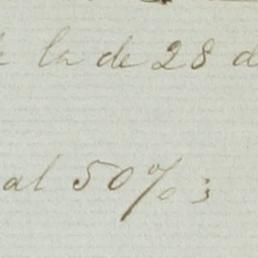 la de 28 d
al 50% ;